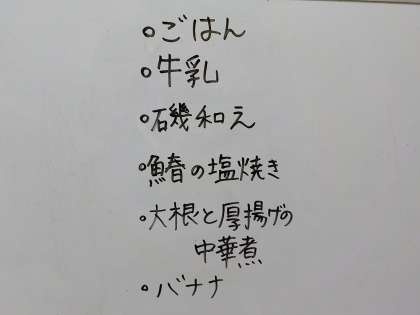 。ごはん
。牛乳
。磯和え
。鰆の塩焼き
。大根と厚揚げの
中華煮
。バナナ